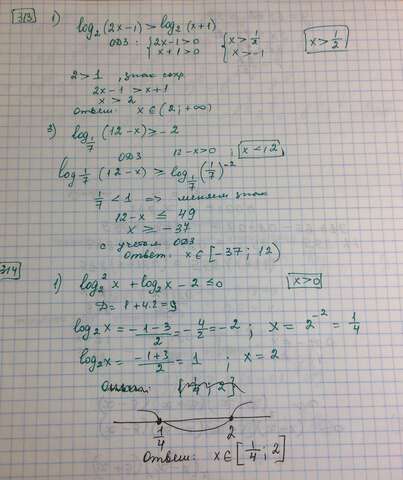 313 1) log₂(2x-1) > log₂(x+1)
ОДЗ: { 2x-1>0 { x > 1/2 x > 1/2
x+1>0 x > -1
2 > 1, знак сохр.
2x-1 > x+1
x > 2
Ответ: x ∈ (2; +∞)
3) log_{1/7} (12-x) ≥ -2
ОДЗ 12-x>0; x<12
log_{1/7} (12-x) ≥ log_{1/7} (1/7)^{-2}
1/7 < 1 => меняем знак
12-x ≤ 49
x ≥ -37
с учетом ОДЗ
Ответ: x ∈ [-37; 12)
314
1) log₂² x + log₂ x - 2 ≤ 0 x>0
D = 1 + 4·2 = 9
log₂ x = (-1-3)/2 = -4/2 = -2; x = 2^{-2} = 1/4
log₂ x = (-1+3)/2 = 1; x = 2
[1/4; 2]
1/4 2
Ответ: x ∈ [1/4; 2]